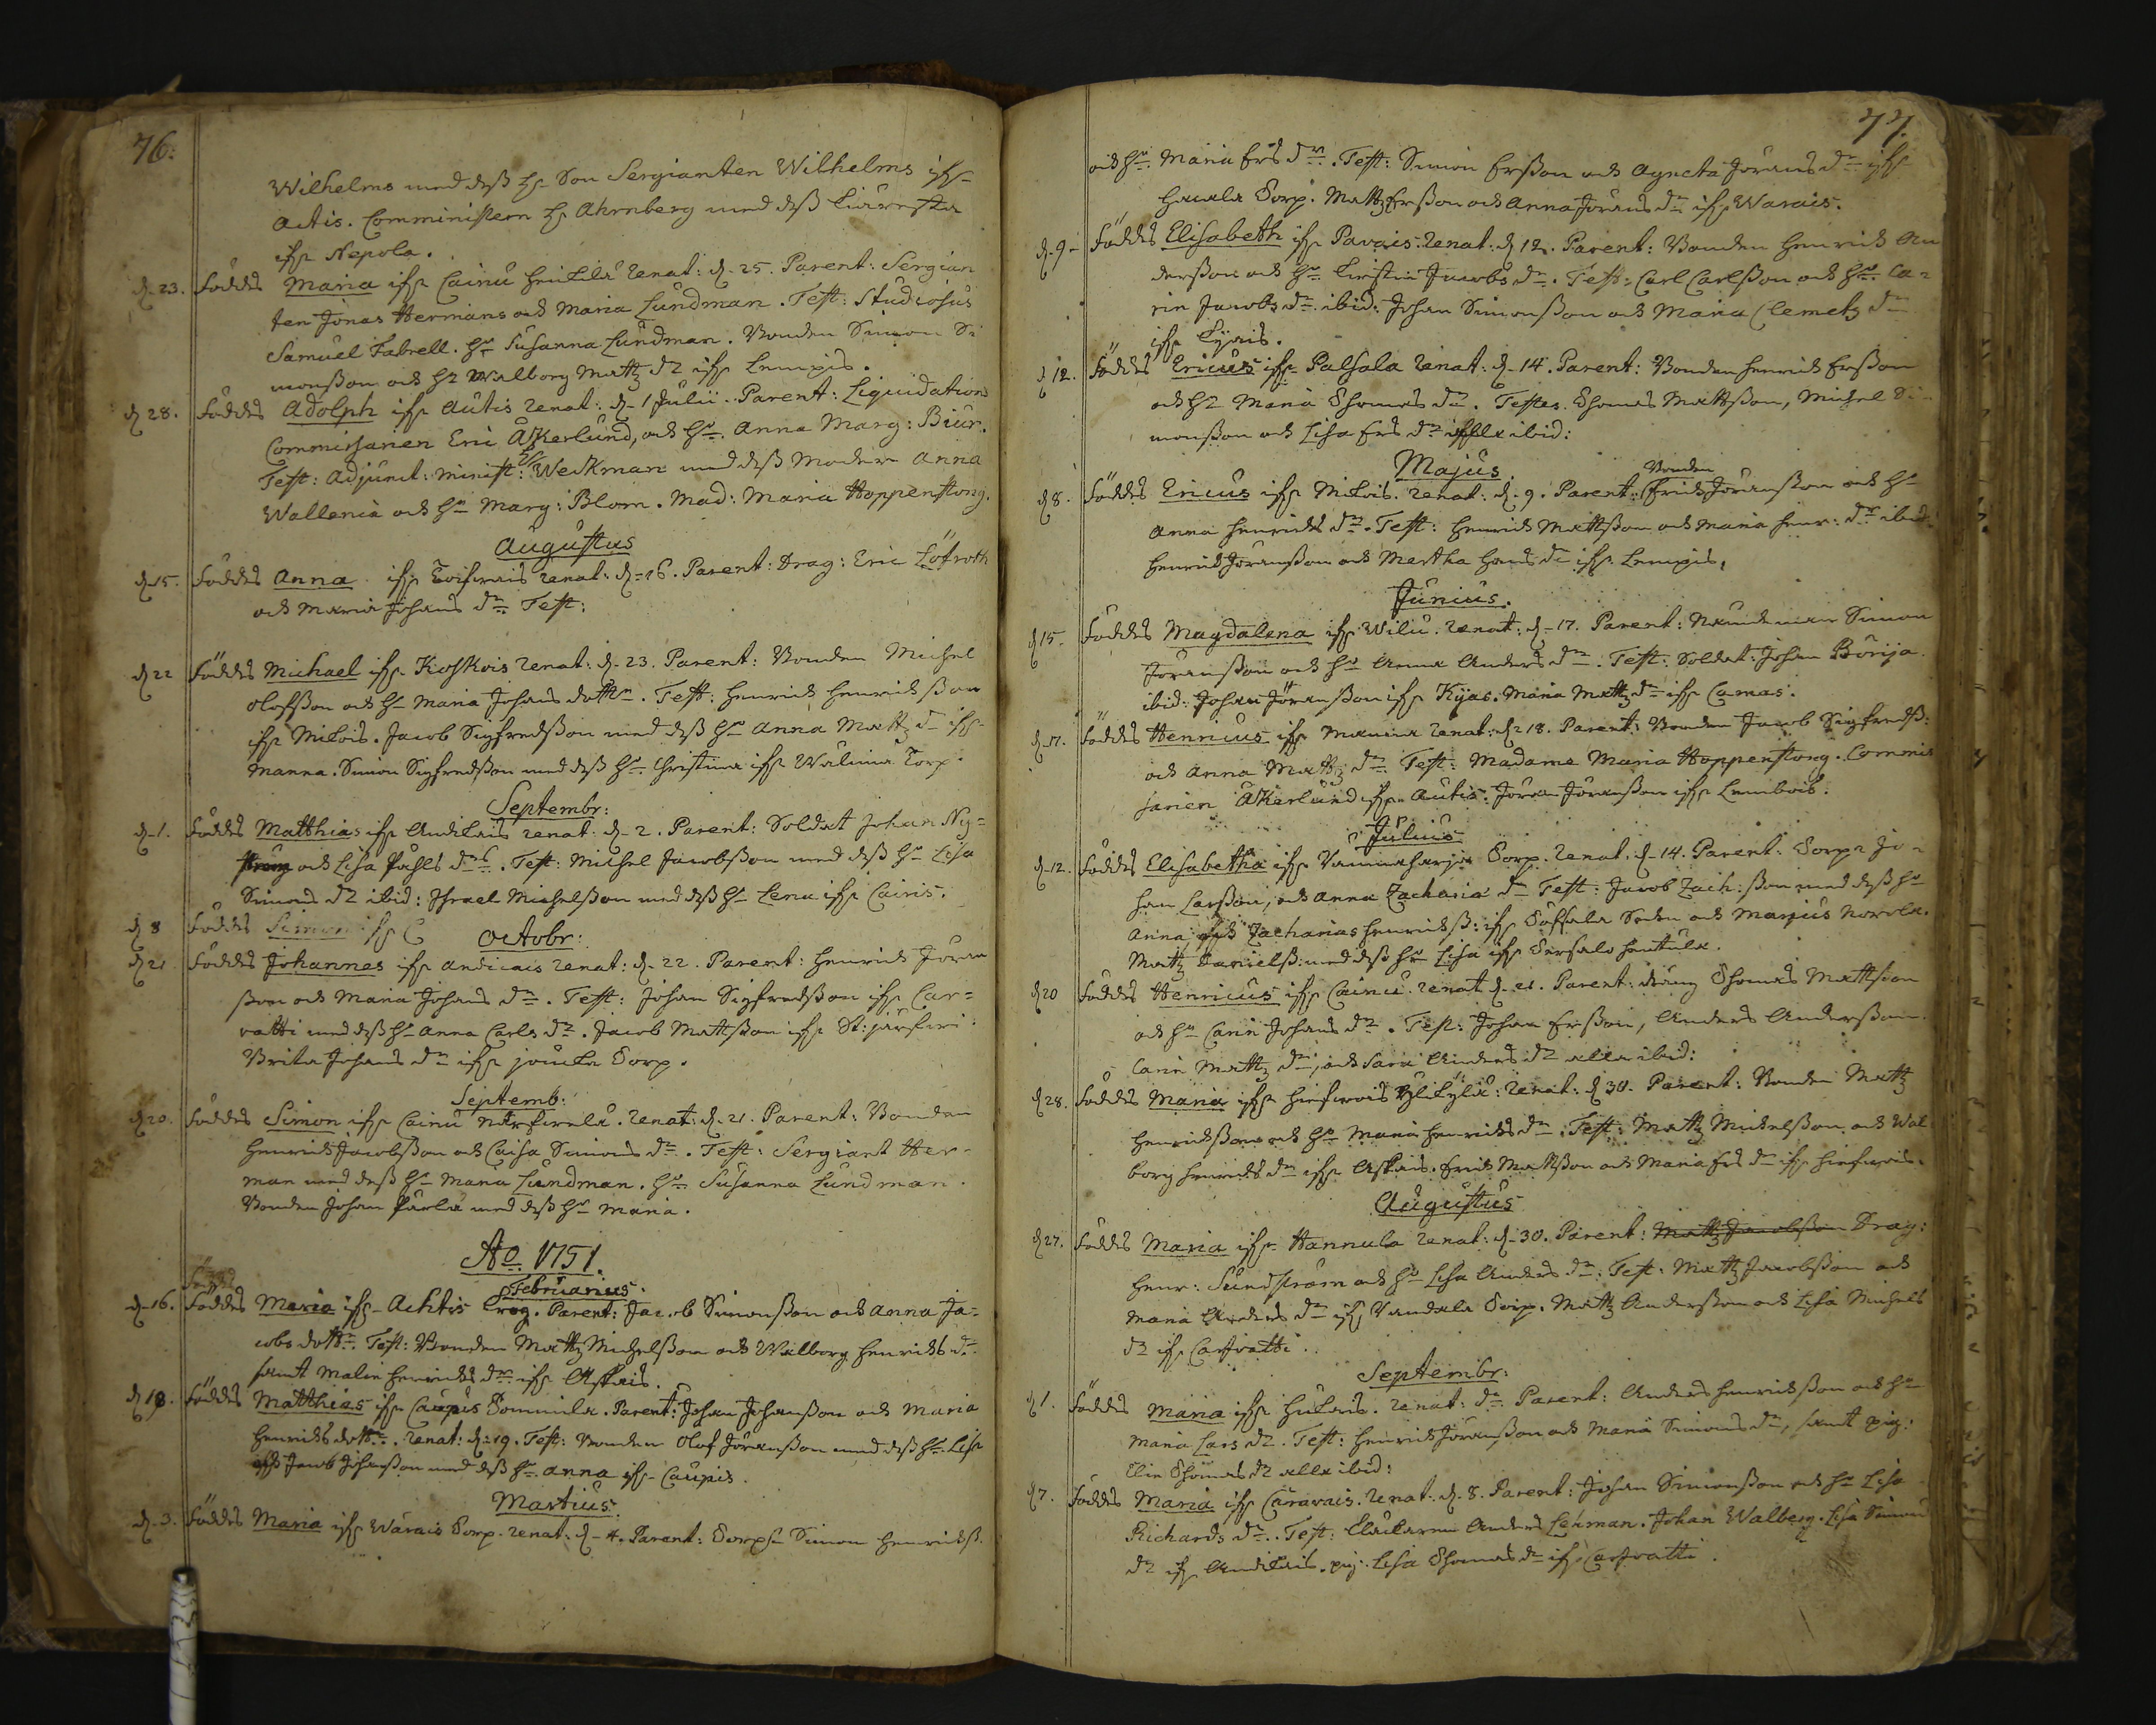 76.
Wilhelms med deß H. Son Sergianten Wilhelms ifr.
Actis. Comministern H. Ahrnberg med deß Kiäresta
ifr. Nepola.
d. 23. Föddes Maria ifr. Cainu Heickilä renat: d. 25. Parent: Sergian
ten Jonas Hermans och Maria Lundman. Test: Studiosus
Samuel Fabrell. Hu Susanna Lundman. Bonden Simon Si
monßon och H. Walborg Mattz dr ifr. Lempis.
d. 28. Föddes Adolph ifr. Autis renat: d. 1 Julii. Parent: Liquidations
Commissarien Eric Åkerlund, och Hu. Anna Marg: Biur.
Test: Adjunct: Minist: Weckman med deß Moder Anna
Wallenia och Hu Marg: Blom. Mad: Maria Hoppenstong.
Augustus
d. 15. Föddes Anna ifr. renat: d. 16. Parent: Drag: Eric Löfroth
och Maria Johans dr. Test:
d. 22 Föddes Michael ifr. Koskois renat: d. 23. Parent: Bonden Michel
Olofßon och Hu Maria Johans dotter. Test: Henrich Henrichßon
ifr. Mikois. Jacob Sigfredßon med deß Hu Anna Mattz dr ifr.
Manna. Simon Sigfredßon med deß Hu Christina ifr. Torp.
Septembr:
d. 1. Föddes Matthias ifr. Andilais renat: d. 2. Parent: Soldat Johan Ny=
och Lisa Påhls dr. Test: Michel Jacobßon med deß Hu Lisa
Simons dr ibid: Israel Michelßon med deß Hu Lena ifr. Cairis.
d. 8 Föddes Simon ifr. C
Octobr:
d. 21 Föddes Johannes ifr. Andicais renat: d. 22. Parent: Henrich Jöran
ßon och Maria Johans dr. Test: Johan Sigfredßon ifr. Car=
vatti med deß Hu Anna Carls dr. Jacob Mattßon ifr. St:
Brita Johans dr ifr. Torp.
Septemb:
d. 20. Föddes Simon ifr. Cainu renat: d. 21. Parent: Bonden
Henrich Jacobßon och Caisa Simons dr. Test: Sergiant Her-
man med deß Hu Maria Lundman. Hu Susanna Lundman.
Bonden Johan Pärlä med deß Hu Maria.
Ao. 1751.
Februarius.
d. 16. Föddes Maria ifr. Achtis Parent: Jacob Simonßon och Anna Ja-
cobs dotter. Test: Bonden Mattz Michelßon och Walborg Henrichs dr.
samt Malin Henrichs dr. ifr. Askais.
d. 18. Föddes Matthias ifr. Caupis Parent: Johan Johanßon och Maria
Henrichs dotter. renat: d. 19. Test: Bonden Olof Jöranßon med deß Hu. Lisa
Jacob Johanßon med deß Hu. Anna ifr. Caupis.
Martius:
d. 3. Föddes Maria ifr. Warais Torp. renat: d. 4. Parent: Torp: Simon Henrichß.
77.
och Hu. Maria Ers dr. Test: Simon Erßon och Agneta Jörans dr ifr.
Torp. Mattz Erßon och Anna Jörans dr ifr. Warais.
d. 9 - Föddes Elisabeth ifr. Pavais. renat: d. 12. Parent: Bonden Henrich An
derßon och Hu. Kirstin Jacobs dr. Test: Carl Carlßon och Hu. Ca=
rin Jacobs dr ibid: Johan Simonßon och Maria Clemetz dr
ifr. Kyais.
d. 12. Föddes Ericus ifr. Palsala renat: d. 14. Parent: Bonden Henrich Erßon
och Hu Maria Thomas dr. Testes. Thomas Mattßon, Michel Si-
monßon och Lisa Ers dr alla ibid:
Majus.
d. 8. Föddes Ericus ifr. Mikois. renat: d. 9. Parent: Bonden Erich Jöranßon och Hu
Anna Henrichs dr. Test: Henrich Mattßon och Maria Henr: dr ibid:
Henrich Jöranßon och Mertha Hans dr ifr. Lempis.
Junius.
d. 15. Föddes Magdalena ifr. Wilu. renat: d. 17. Parent: Nämdeman Simon
Jöranßon och Hu Anna Anders dr. Test: Soldat: Johan Börija
ibid: Johan Jöranßon ifr. Kyas. Maria Mattz dr ifr. Camas.
d. 17. Föddes Henricus ifr. Manna renat: d. 18. Parent: Bonden Jacob Sigfredß:
och Anna Mattz dr. Test: Madame Maria Hoppenstong. Commis
sarien Åkerlund ifr. Autis: Jöran Jöranßon ifr. Lembois.
Julius
d. 12. Föddes Elisabetha ifr. Torp. renat: d. 14. Parent: Torp: Jo=
han Larßon, och Anna Zachariæ dr Test: Jacob Zach:ßon med deß Hu
Anna och Zacharias Henrichß: ifr. och Marjus
Mattz Danielß: med deß Hu Lisa ifr.
d. 20 Föddes Henricus ifr. Cainu. renat: d. 21. Parent: dräng Thomas Mattßon
och Hu Carin Johans dr. Test: Johan Erßon, Anders Anderßon.
Carin Mattz dr, och Sara Anders dr alla ibid:
d. 28. Föddes Maria ifr. Hiefwois renat: d. 30. Parent: Bonden Mattz
Henrichßon och Hu Maria Henrichs dr. Test: Mattz Michelßon och Wal
borg Henrichs dr ifr. Askais. Erich Mattßon och Maria Ers dr ifr. Hiefwois.
Augustus
d. 27. Föddes Maria ifr. Hannula renat: d. 30. Parent: Mattz Jacobßon Drag:
Henr: Sundström och Hu Lisa Anders dr. Test: Mattz Jacobßon och
Maria Anders dr ifr. Torp. Mattz Anderßon och Lisa Michels
dr ifr. Carfvatti.
Septembr:
d. 1. Föddes Maria ifr. renat: dr. Parent: Anders Henrichßon och Hu
Maria Lars dr. Test: Henrich Jöranßon och Maria Simons dr, samt pig:
Elin Thomas dr alla ibid:
d. 7. Föddes Maria ifr. Caravais. renat: d. 8. Parent: Johan Simonßon och Hu Lisa
Richards dr. Test: Anders Lehman. Johan Walberg. Lisa Simons
dr ifr. Andilais. pig: Lisa Thomas dr ifr. Carfvatti.